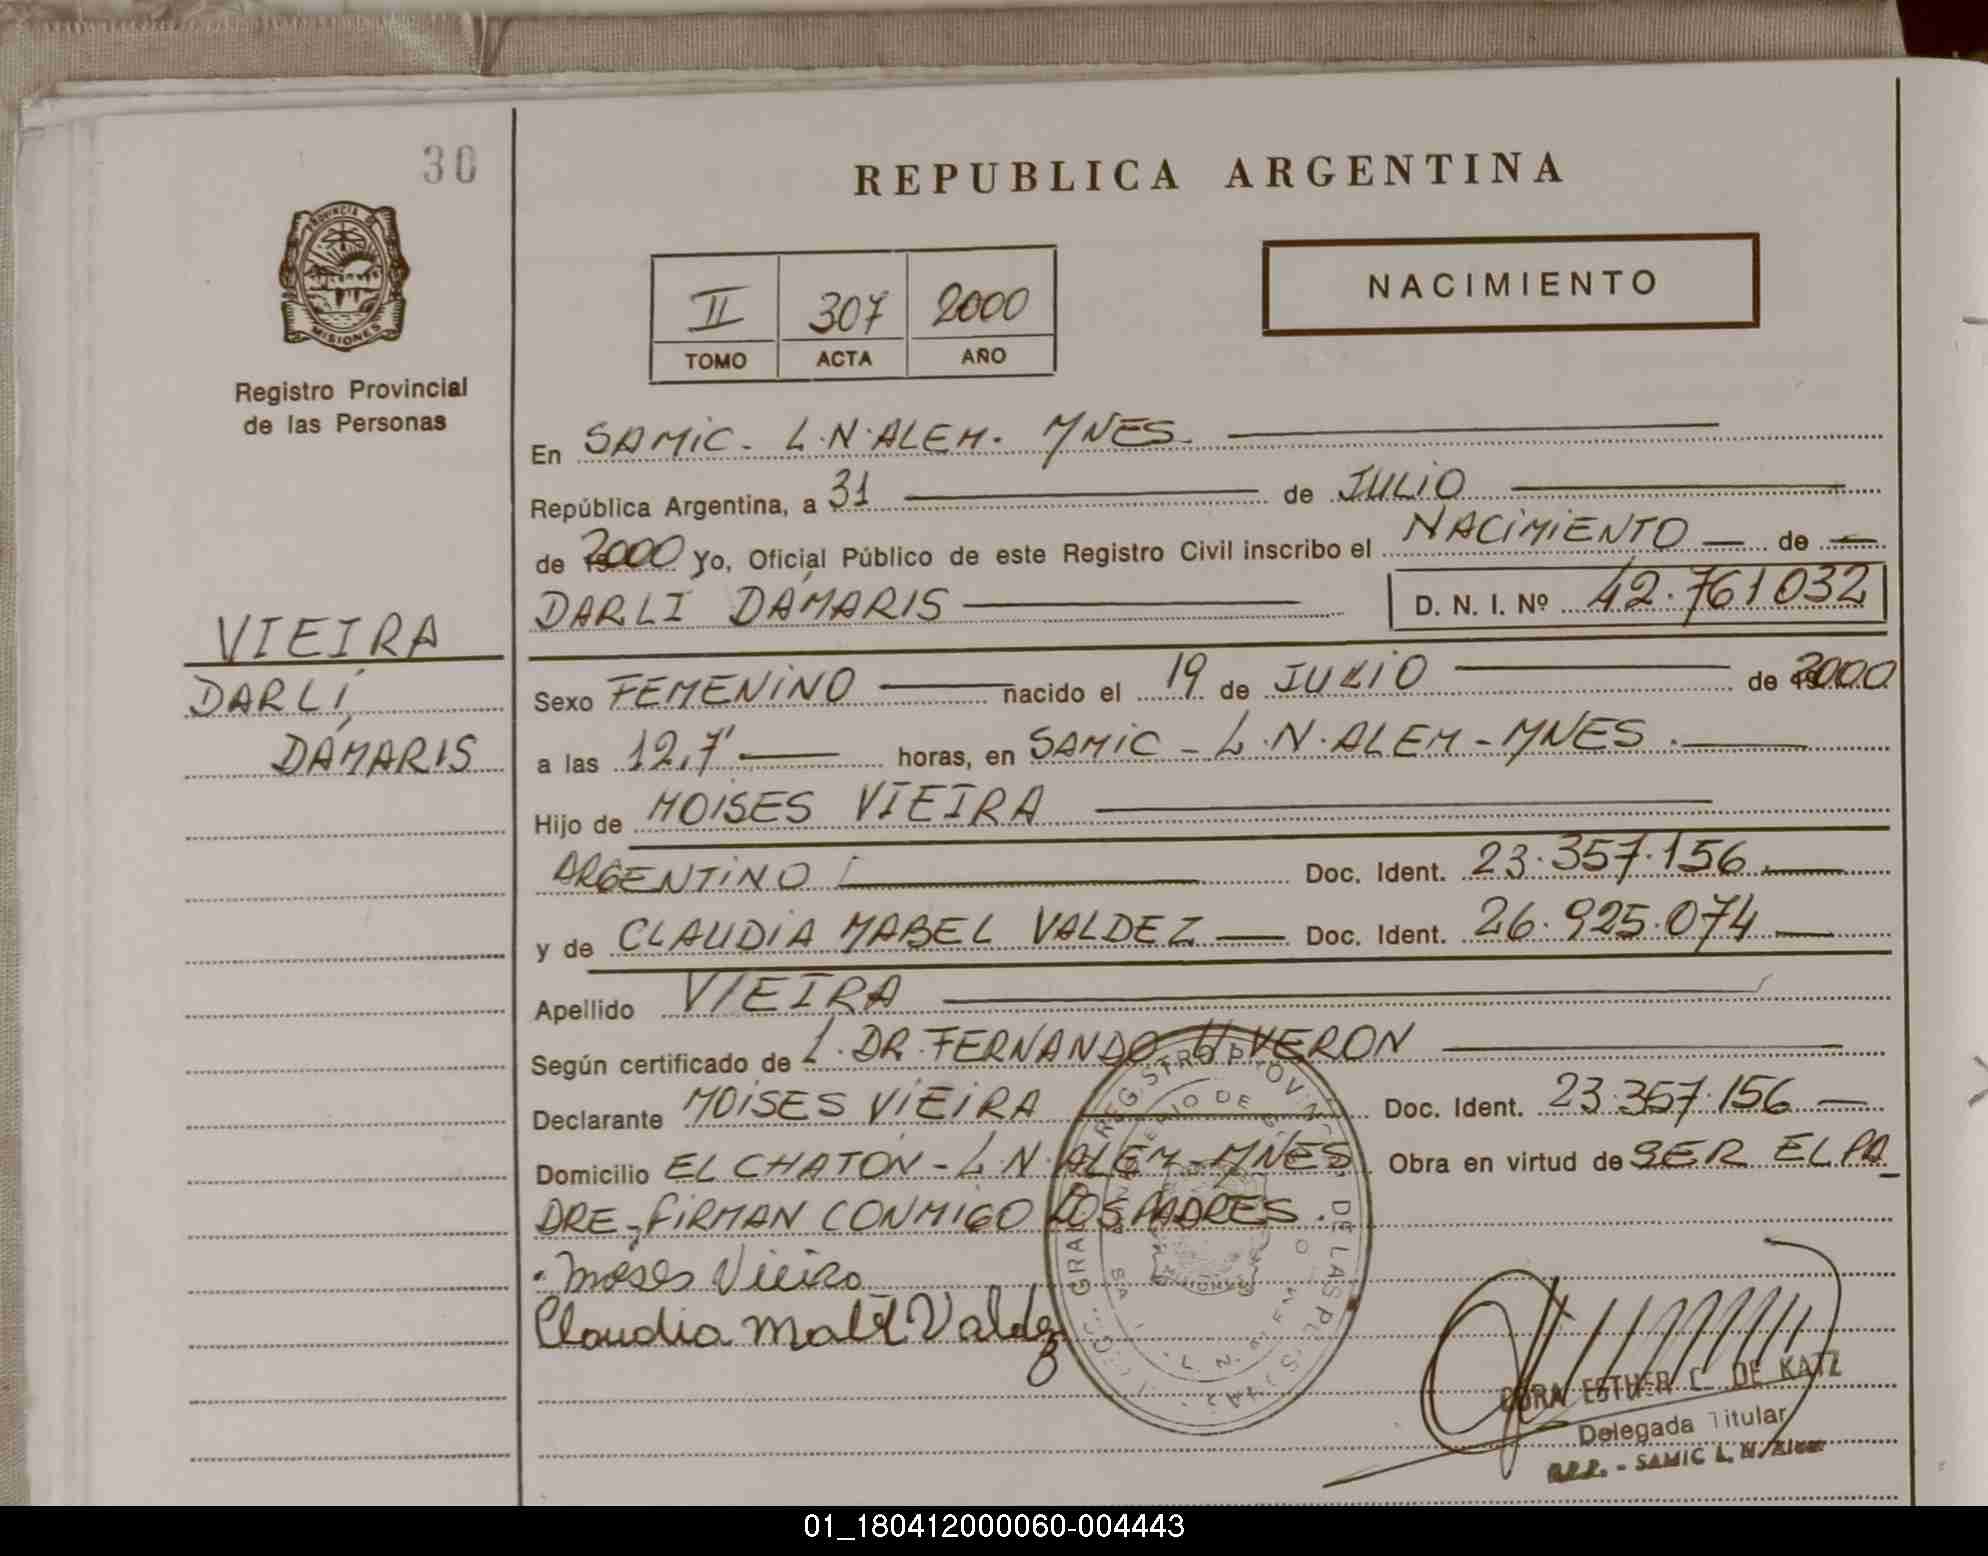 30
REPUBLICA ARGENTINA
PROVINCIA DE
MISIONES
Registro Provincial
de las Personas
II 307 2000
TOMO ACTA AÑO
NACIMIENTO
En SAMIC - L.N. ALEM. MNES.
República Argentina, a 31 de JULIO
de 2000 Yo, Oficial Público de este Registro Civil inscribo el NACIMIENTO de
DARLI DÁMARIS D. N. I. Nº 42.761032
VIEIRA
DARLI,
DÁMARIS
Sexo FEMENINO nacido el 19 de JULIO de 2000
a las 12,7' horas, en SAMIC - L.N. ALEM - MNES.
Hijo de MOISES VIEIRA
ARGENTINO Doc. Ident. 23.357.156
y de CLAUDIA MABEL VALDEZ Doc. Ident. 26.925.074
Apellido VIEIRA
Según certificado de DR. FERNANDO VERON
Declarante MOISES VIEIRA Doc. Ident. 23.357.156
Domicilio EL CHATON - L.N. ALEM - MNES Obra en virtud de SER EL PA
DRE - FIRMAN CONMIGO LOS PADRES.
Moises Vieira
Claudia Valdez
ESTHER C. DE KATZ
Delegada Titular
R.P.P. - SAMIC L. N. Alem
01_180412000060-004443